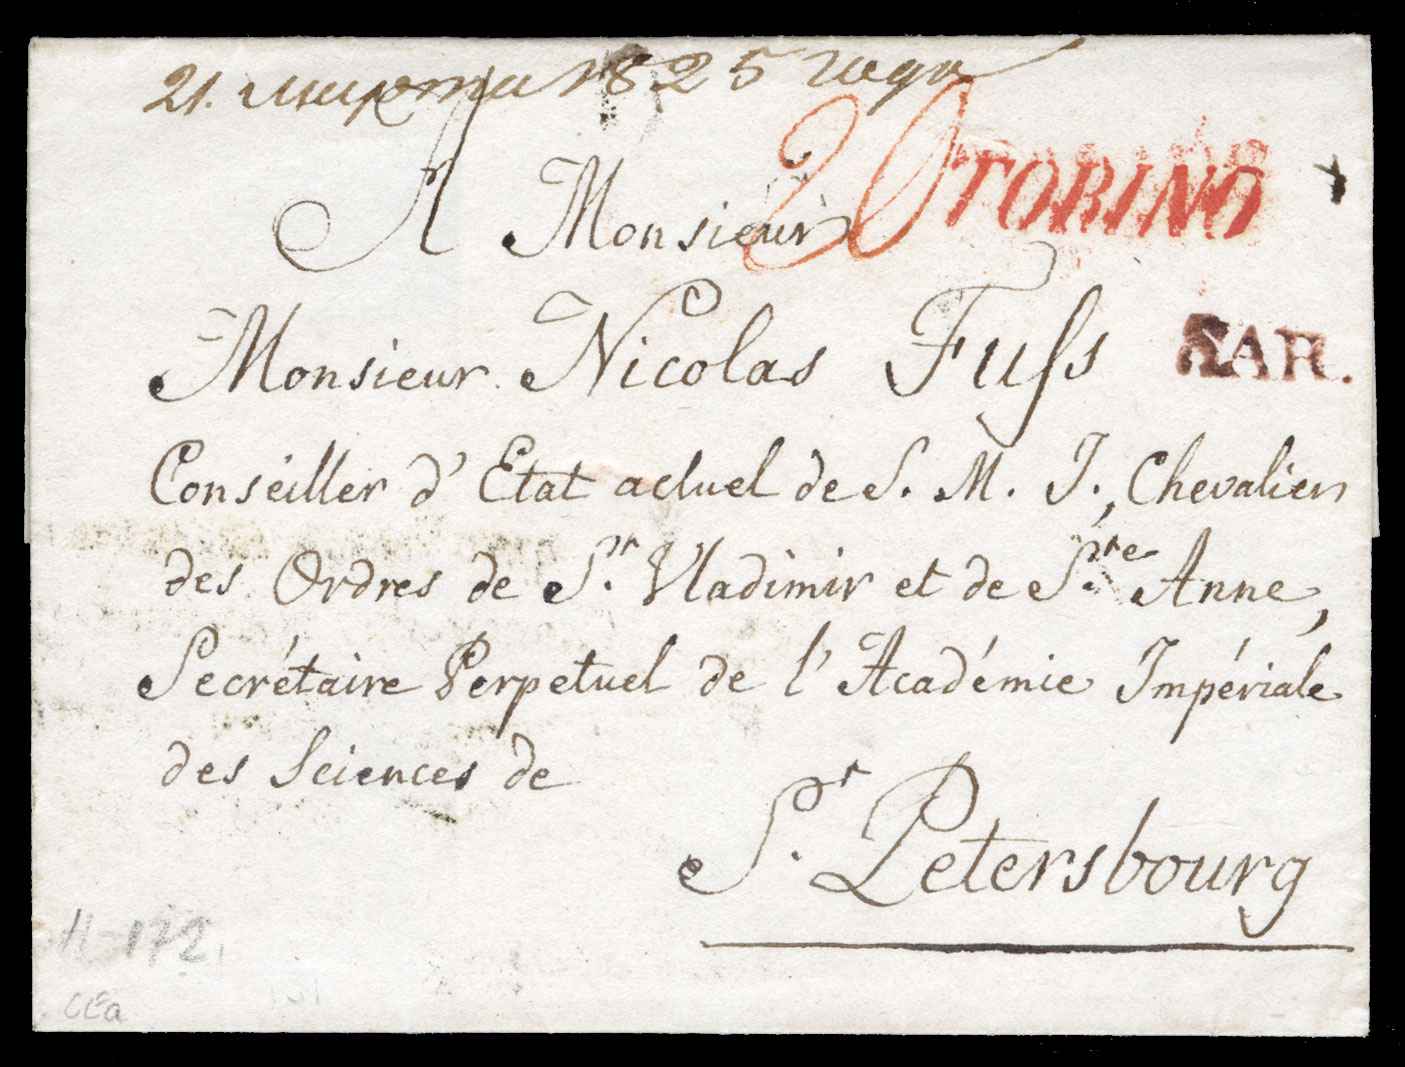 21. апреля 1825 года
A Monsieur
20
TORINO
Monsieur Nicolas Fuſs
SAR.
Conséiller d'Etat actuel de S. M. I., Chevalier
des Ordres de St. Vladimir et de Ste. Anne,
Secrétaire Perpetuel de l'Académie Impériale
des Sciences de
St. Petersbourg
11-172.
CEa